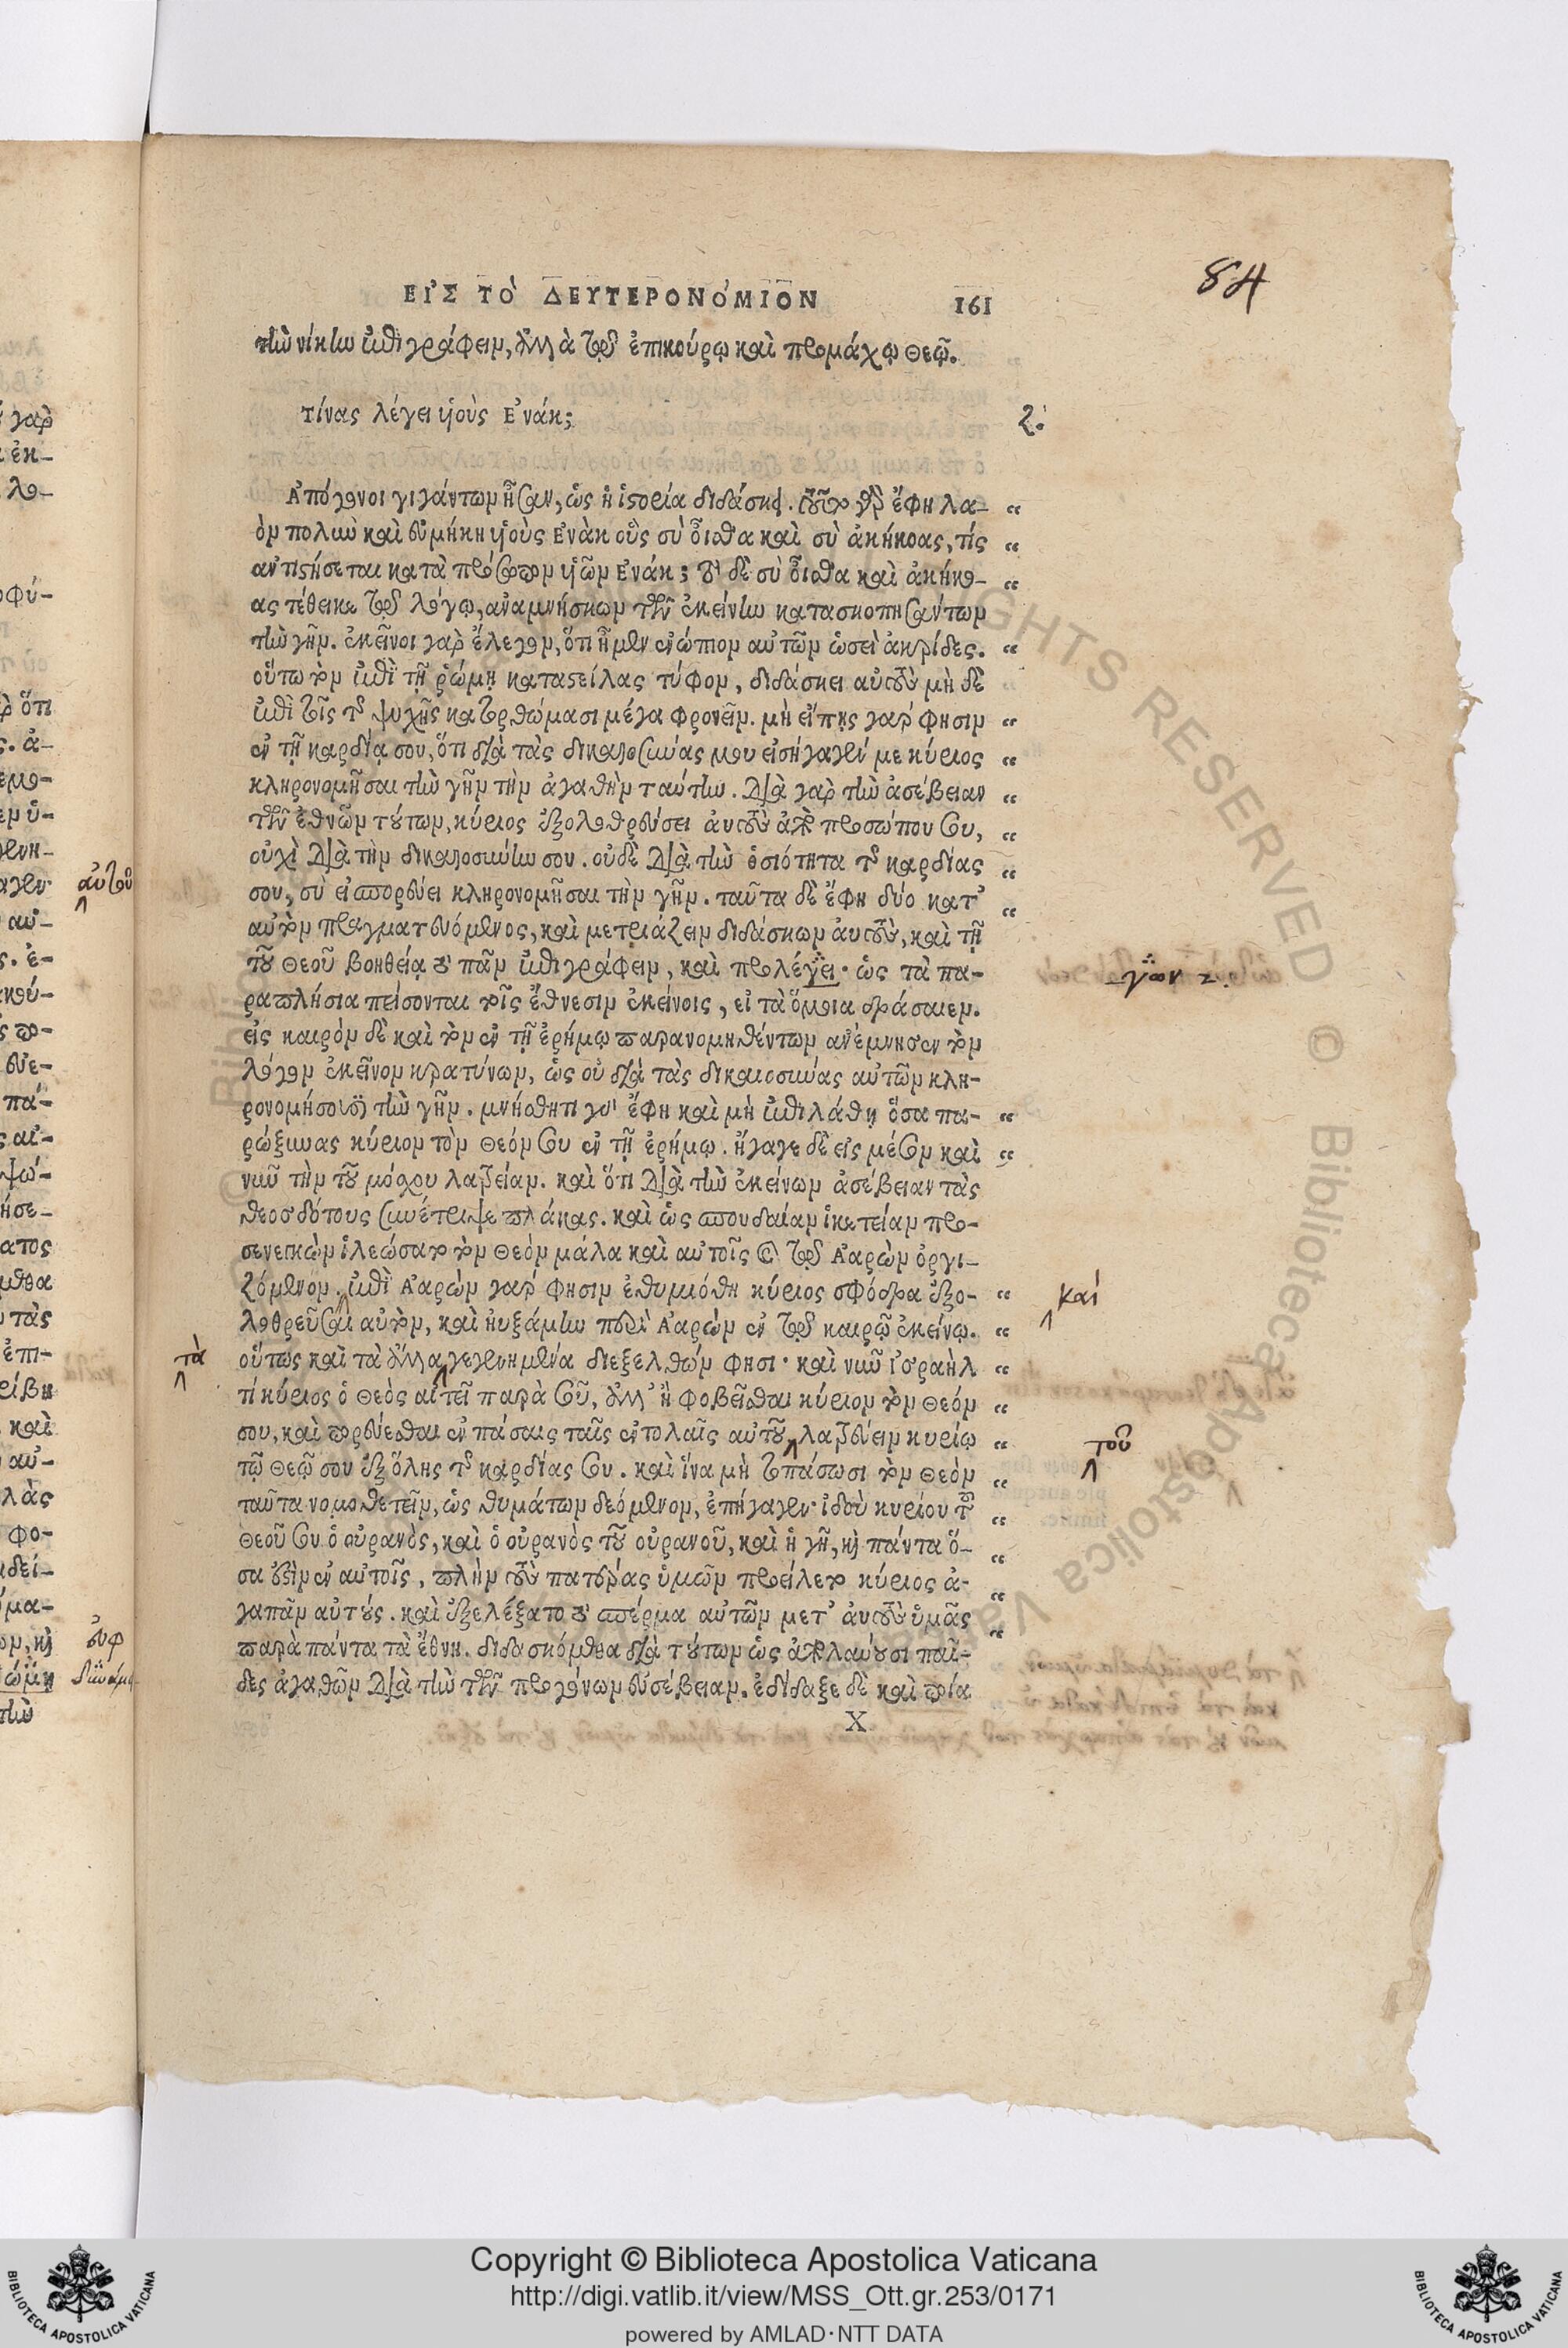 84
ΕἸΣ ΤῸ ΔΕΥΤΕΡΟΝΌΜΙΟΝ 161
τὴν νίκην ἐπιγράφειν, ἀλλὰ τῷ ἐπικούρῳ καὶ προμάχῳ Θεῷ.
Τίνας λέγει υἱοὺς Ἐνάκ; ζ.
Ἀπόγονοι γιγάντων ἦσαν, ὡς ἡ ἱστορία διδάσκει. τοῦτο γὰρ ἔφη λα- “
ὸν πολὺν καὶ εὐμήκη υἱοὺς Ἐνὰκ οὓς σὺ οἶσθα καὶ σὺ ἀκήκοας, τίς “
ἀντιστήσεται κατὰ πρόσωπον υἱῶν Ἐνάκ; τὸ δὲ σὺ οἶσθα καὶ ἀκήκο- “
ας τέθεικε τῷ λόγῳ, ἀναμνήσκων τῶν ἐκείνην κατασκοπησάντων
τὴν γῆν. ἐκεῖνοι γὰρ ἔλεγον, ὅτι ἦμεν ἐνώπιον αὐτῶν ὡσεὶ ἀκρίδες. “
οὕτω τὸν ἐπὶ τῇ ῥώμῃ καταστείλας τύφον, διδάσκει αὐτοὺς μὴ δὲ
ἐπὶ τοῖς τῆς ψυχῆς κατορθώμασι μέγα φρονεῖν. μὴ εἴπῃς γάρ φησιν “
ἐν τῇ καρδίᾳ σου, ὅτι διὰ τὰς δικαιοσύνας μου εἰσήγαγέν με κύριος “
κληρονομῆσαι τὴν γῆν τὴν ἀγαθὴν ταύτην. διὰ γὰρ τὴν ἀσέβειαν “
τῶν ἐθνῶν τούτων, κύριος ἐξολοθρεύσει αὐτοὺς ἀπὸ προσώπου σου, “
οὐχὶ διὰ τὴν δικαιοσύνην σου. οὐδὲ διὰ τὴν ὁσιότητα τῆς καρδίας “
σου, σὺ εἰσπορεύει κληρονομῆσαι τὴν γῆν. ταῦτα δὲ ἔφη δύο κατ’ “
αὐτὸν πραγματευόμενος, καὶ μετριάζειν διδάσκων αὐτοὺς, καὶ τῇ
τοῦ Θεοῦ βοηθείᾳ τὸ πᾶν ἐπιγράφειν, καὶ προλέγει· ὡς τὰ πα-
ραπλήσια πείσονται τοῖς ἔθνεσιν ἐκείνοις, εἰ τὰ ὅμοια δράσαιεν.
εἰς καιρὸν δὲ καὶ τὸν ἐν τῇ ἐρήμῳ παρανομηθέντων ἀνέμνησεν τὸν
λόγον ἐκεῖνον κρατύνων, ὡς οὐ διὰ τὰς δικαιοσύνας αὐτῶν κλη-
ρονομήσουσι τὴν γῆν. μνήσθητι γὰρ ἔφη καὶ μὴ ἐπιλάθῃ ὅσα πα- “
ρώξυνας κύριον τὸν Θεόν σου ἐν τῇ ἐρήμῳ. ἤγαγε δὲ εἰς μέσον καὶ “
νῦν τὴν τοῦ μόσχου λατρείαν. καὶ ὅτι διὰ τὴν ἐκείνων ἀσέβειαν τὰς
θεοσδότους συνέτριψε πλάκας. καὶ ὡς σπουδαίαν ἱκετείαν προ-
σενεγκὼν ἱλεώσατο τὸν Θεὸν μάλα καὶ αὐτοῖς καὶ τῷ Ἀαρὼν ὀργι-
ζόμενον. ἐπὶ Ἀαρὼν γάρ φησιν ἐθυμώθη κύριος σφόδρα ἐξο- “
λοθρεῦσαι αὐτὸν, καὶ ηὐξάμην περὶ Ἀαρὼν ἐν τῷ καιρῷ ἐκείνῳ. “
οὕτως καὶ τὰ ἄλλα γεγενημένα διεξελθών φησι· καὶ νῦν Ἰσραὴλ “
τί κύριος ὁ Θεὸς αἰτεῖ παρὰ σοῦ, ἀλλ’ ἢ φοβεῖσθαι κύριον τὸν Θεόν “
σου, καὶ πορεύεσθαι ἐν πάσαις ταῖς ἐντολαῖς αὐτοῦ λατρεύειν κυρίῳ “
τῷ Θεῷ σου ἐξ ὅλης τῆς καρδίας σου. καὶ ἵνα μὴ τοπάσωσι τὸν Θεὸν “
ταῦτα νομοθετεῖν, ὡς θυμάτων δεόμενον, ἐπήγαγεν· ἰδοὺ κυρίου τοῦ “
Θεοῦ σου ὁ οὐρανὸς, καὶ ὁ οὐρανὸς τοῦ οὐρανοῦ, καὶ ἡ γῆ, καὶ πάντα ὅ- “
σα ἐστὶν ἐν αὐτοῖς, πλὴν τοὺς πατέρας ὑμῶν προείλετο κύριος ἀ- “
γαπᾶν αὐτούς. καὶ ἐξελέξατο τὸ σπέρμα αὐτῶν μετ’ αὐτοὺς ὑμᾶς “
παρὰ πάντα τὰ ἔθνη. διδασκόμεθα διὰ τούτων ὡς ἀπολαύουσι παῖ-
δες ἀγαθῶν διὰ τὴν τῶν προγόνων εὐσέβειαν. ἐδίδαξε δὲ καὶ τρία
X
καί
τὰ
τοῦ
αὐτοῦ
Copyright © Biblioteca Apostolica Vaticana
http://digi.vatlib.it/view/MSS_Ott.gr.253/0171
powered by AMLAD·NTT DATA
BIBLIOTECA APOSTOLICA VATICANA
BIBLIOTECA APOSTOLICA VATICANA